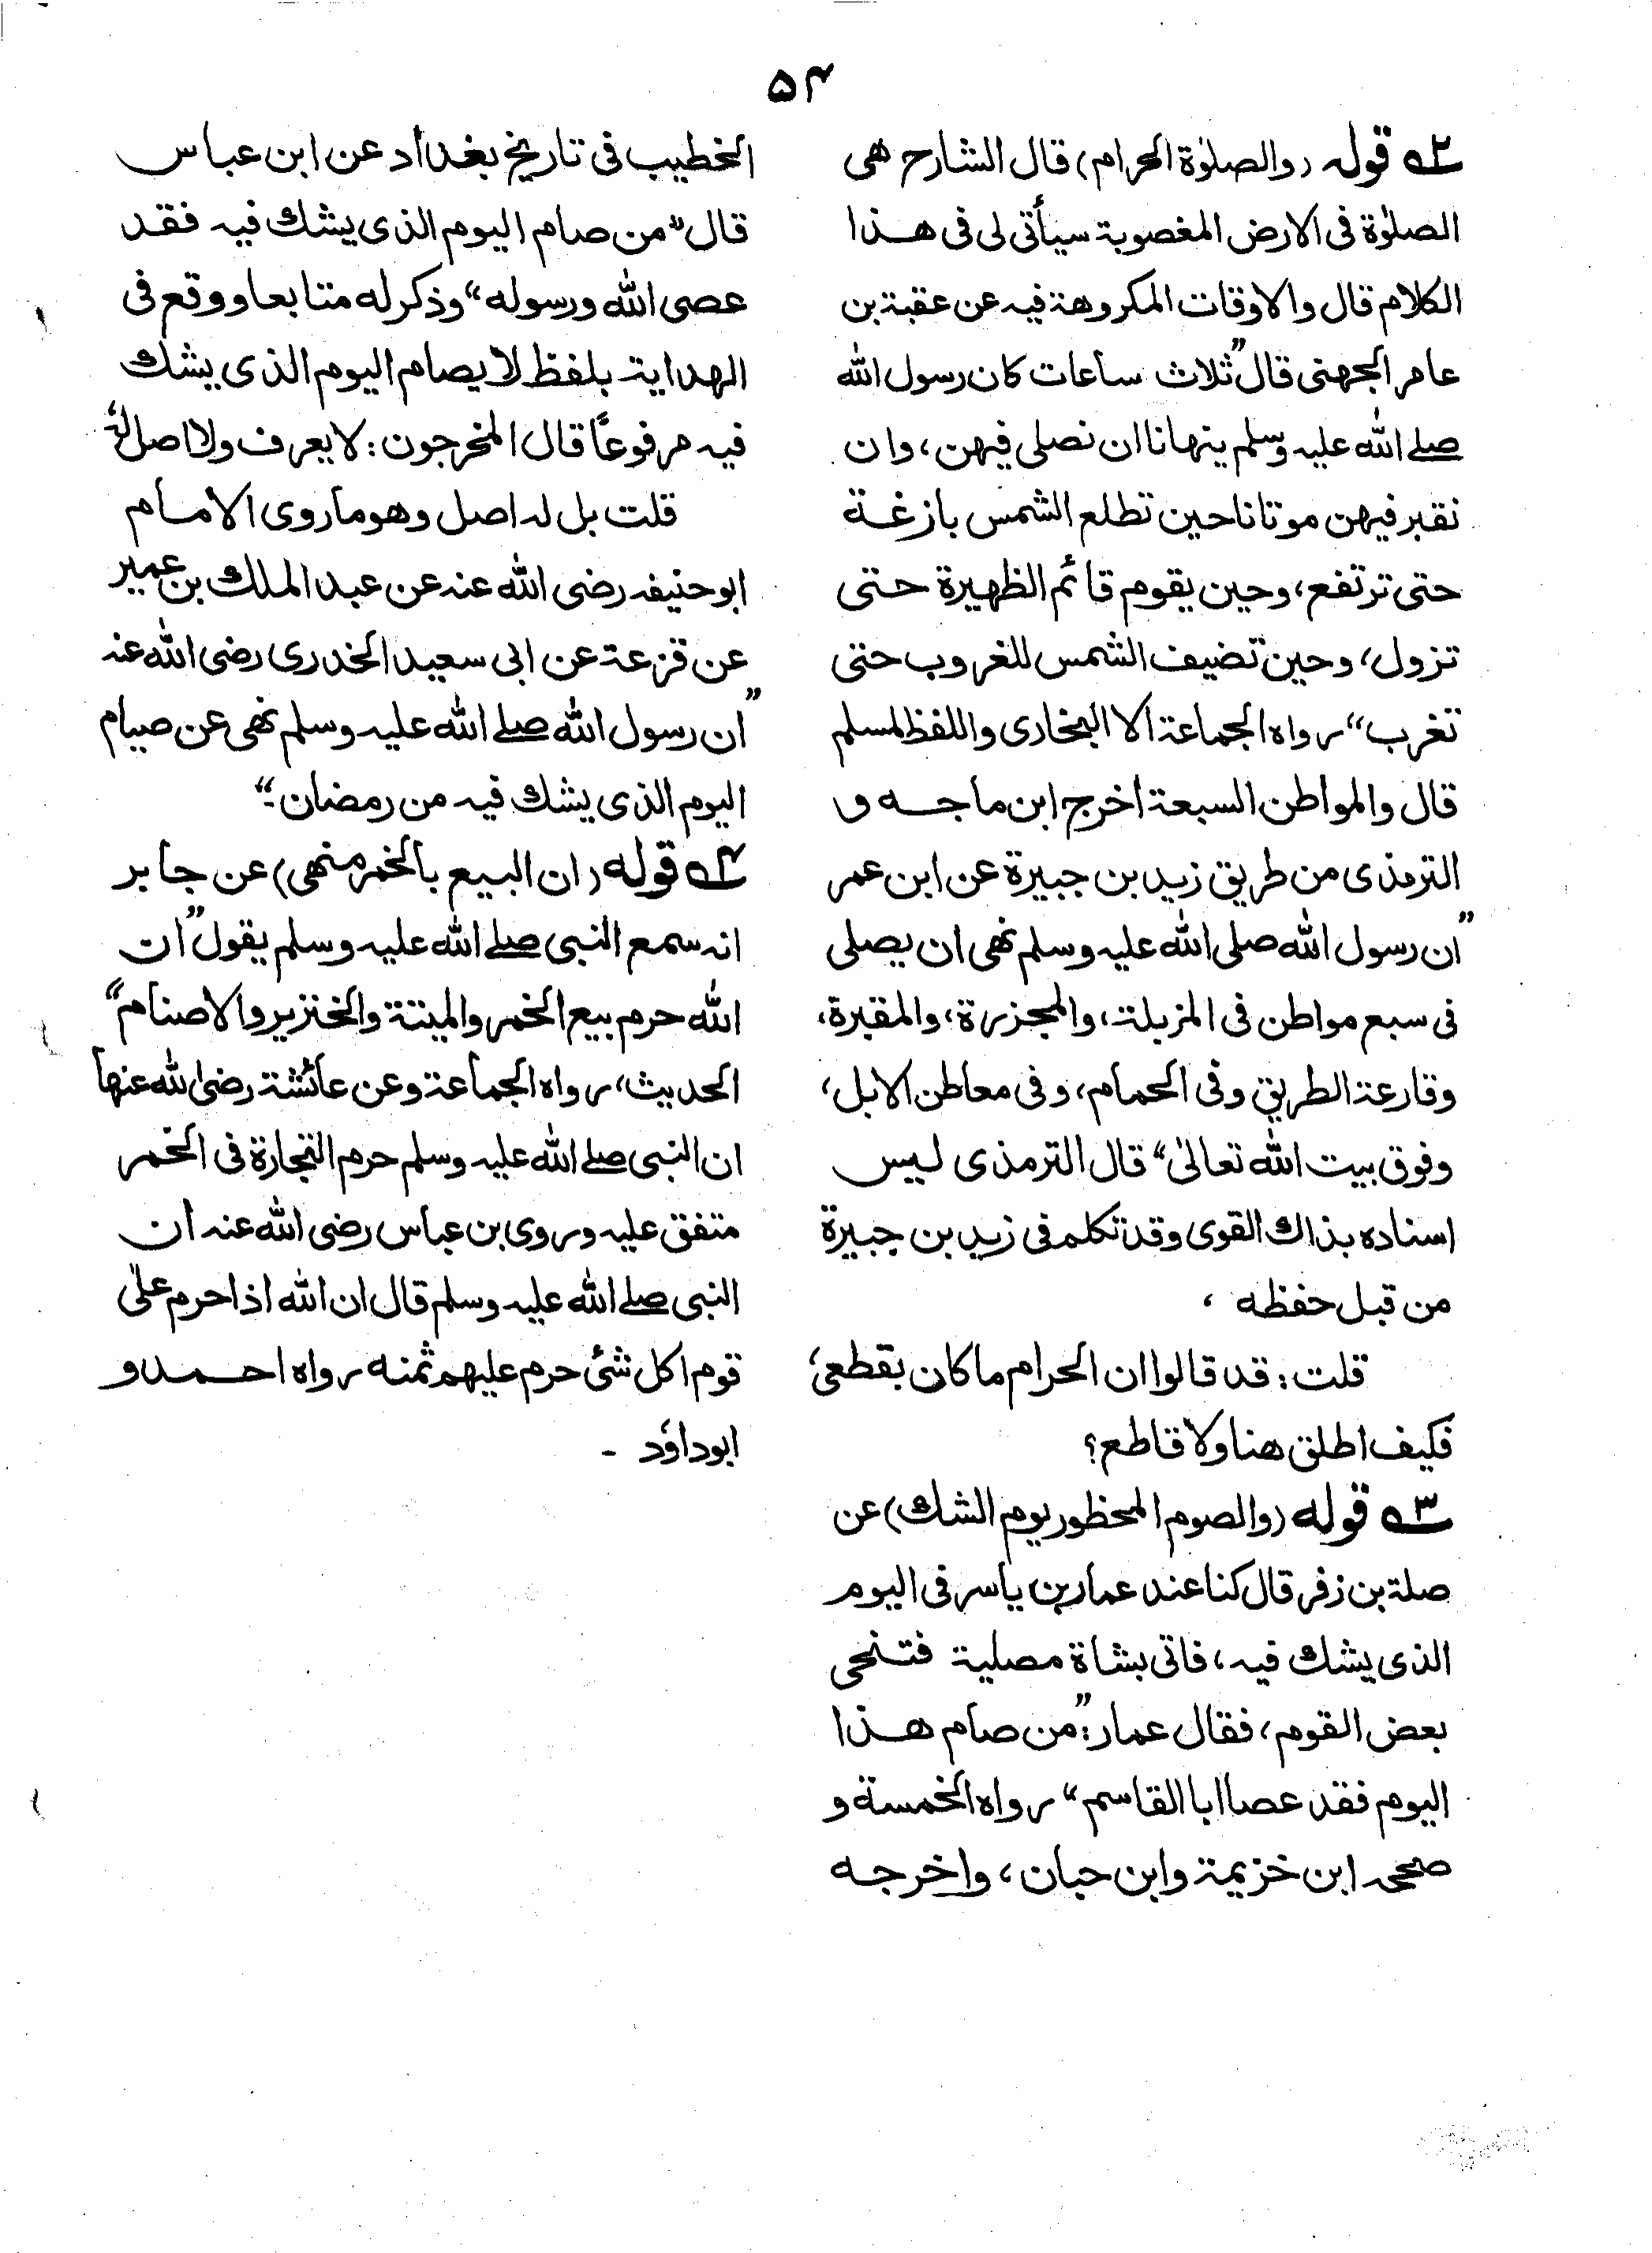 ۵۴
۲ قوله (والصلوٰة الحرام) قال الشارح هى
الصلوٰة فى الارض المغصوبة سيأتى لى فى هذا
الكلام قال والاوقات المكروهة فيه عن عقبة بن
عامر الجهنى قال "ثلاث ساعات كان رسول الله
صلے الله عليه وسلم ينهانا ان نصلى فيهن، وان
نقبر فيهن موتانا حين تطلع الشمس بازغة
حتى ترتفع، وحين يقوم قائم الظهيرة حتى
تزول، وحين تضيف الشمس للغروب حتى
تغرب" رواه الجماعة الا البخارى واللفظ لمسلم
قال والمواطن السبعة اخرج ابن ماجه و
الترمذى من طريق زيد بن جبيرة عن ابن عمر
"ان رسول الله صلى الله عليه وسلم نهى ان يصلى
فى سبع مواطن فى المزبلة، والمجزرة، والمقبرة،
وقارعة الطريق وفى الحمام، وفى معاطن الابل،
وفوق بيت الله تعالىٰ" قال الترمذى ليس
اسناده بذاك القوى وقد تكلم فى زيد بن جبيرة
من قبل حفظه ،
قلت: قد قالوا ان الحرام ما كان بقطعى،
فكيف اطلق هنا ولا قاطع؟
۳ قوله (والصوم المحظور يوم الشك) عن
صلة بن زفر قال كنا عند عمار بن ياسر فى اليوم
الذى يشك فيه، فاتى بشاة مصلية فتنحى
بعض القوم، فقال عمار: "من صام هذا
اليوم فقد عصا ابا القاسم" رواه الخمسة و
صححه ابن خزيمة وابن حبان، واخرجه
الخطيب فى تاريخ بغداد عن ابن عباس
قال "من صام اليوم الذى يشك فيه فقد
عصى الله ورسوله" وذكر له متابعا ووقع فى
الهداية بلفظ لا يصام اليوم الذى يشك
فيه مرفوعًا قال المخرجون: لا يعرف ولا اصل له،
قلت بل له اصل وهو ما روى الامام
ابو حنيفه رضى الله عنه عن عبد الملك بن عمير
عن قزعة عن ابى سعيد الخدرى رضى الله عنه
"ان رسول الله صلے الله عليه وسلم نهى عن صيام
اليوم الذى يشك فيه من رمضان۔"
۴ قوله (ان البيع بالخمر منهى) عن جابر
انه سمع النبى صلے الله عليه وسلم يقول "ان
الله حرم بيع الخمر والميتة والخنزير والاصنام"
الحديث، رواه الجماعة وعن عائشة رضى الله عنها
ان النبى صلے الله عليه وسلم حرم التجارة فى الخمر
متفق عليه وروى بن عباس رضى الله عنه ان
النبى صلے الله عليه وسلم قال ان الله اذا حرم علىٰ
قوم اكل شئ حرم عليهم ثمنه رواه احمد و
ابوداؤد ۔